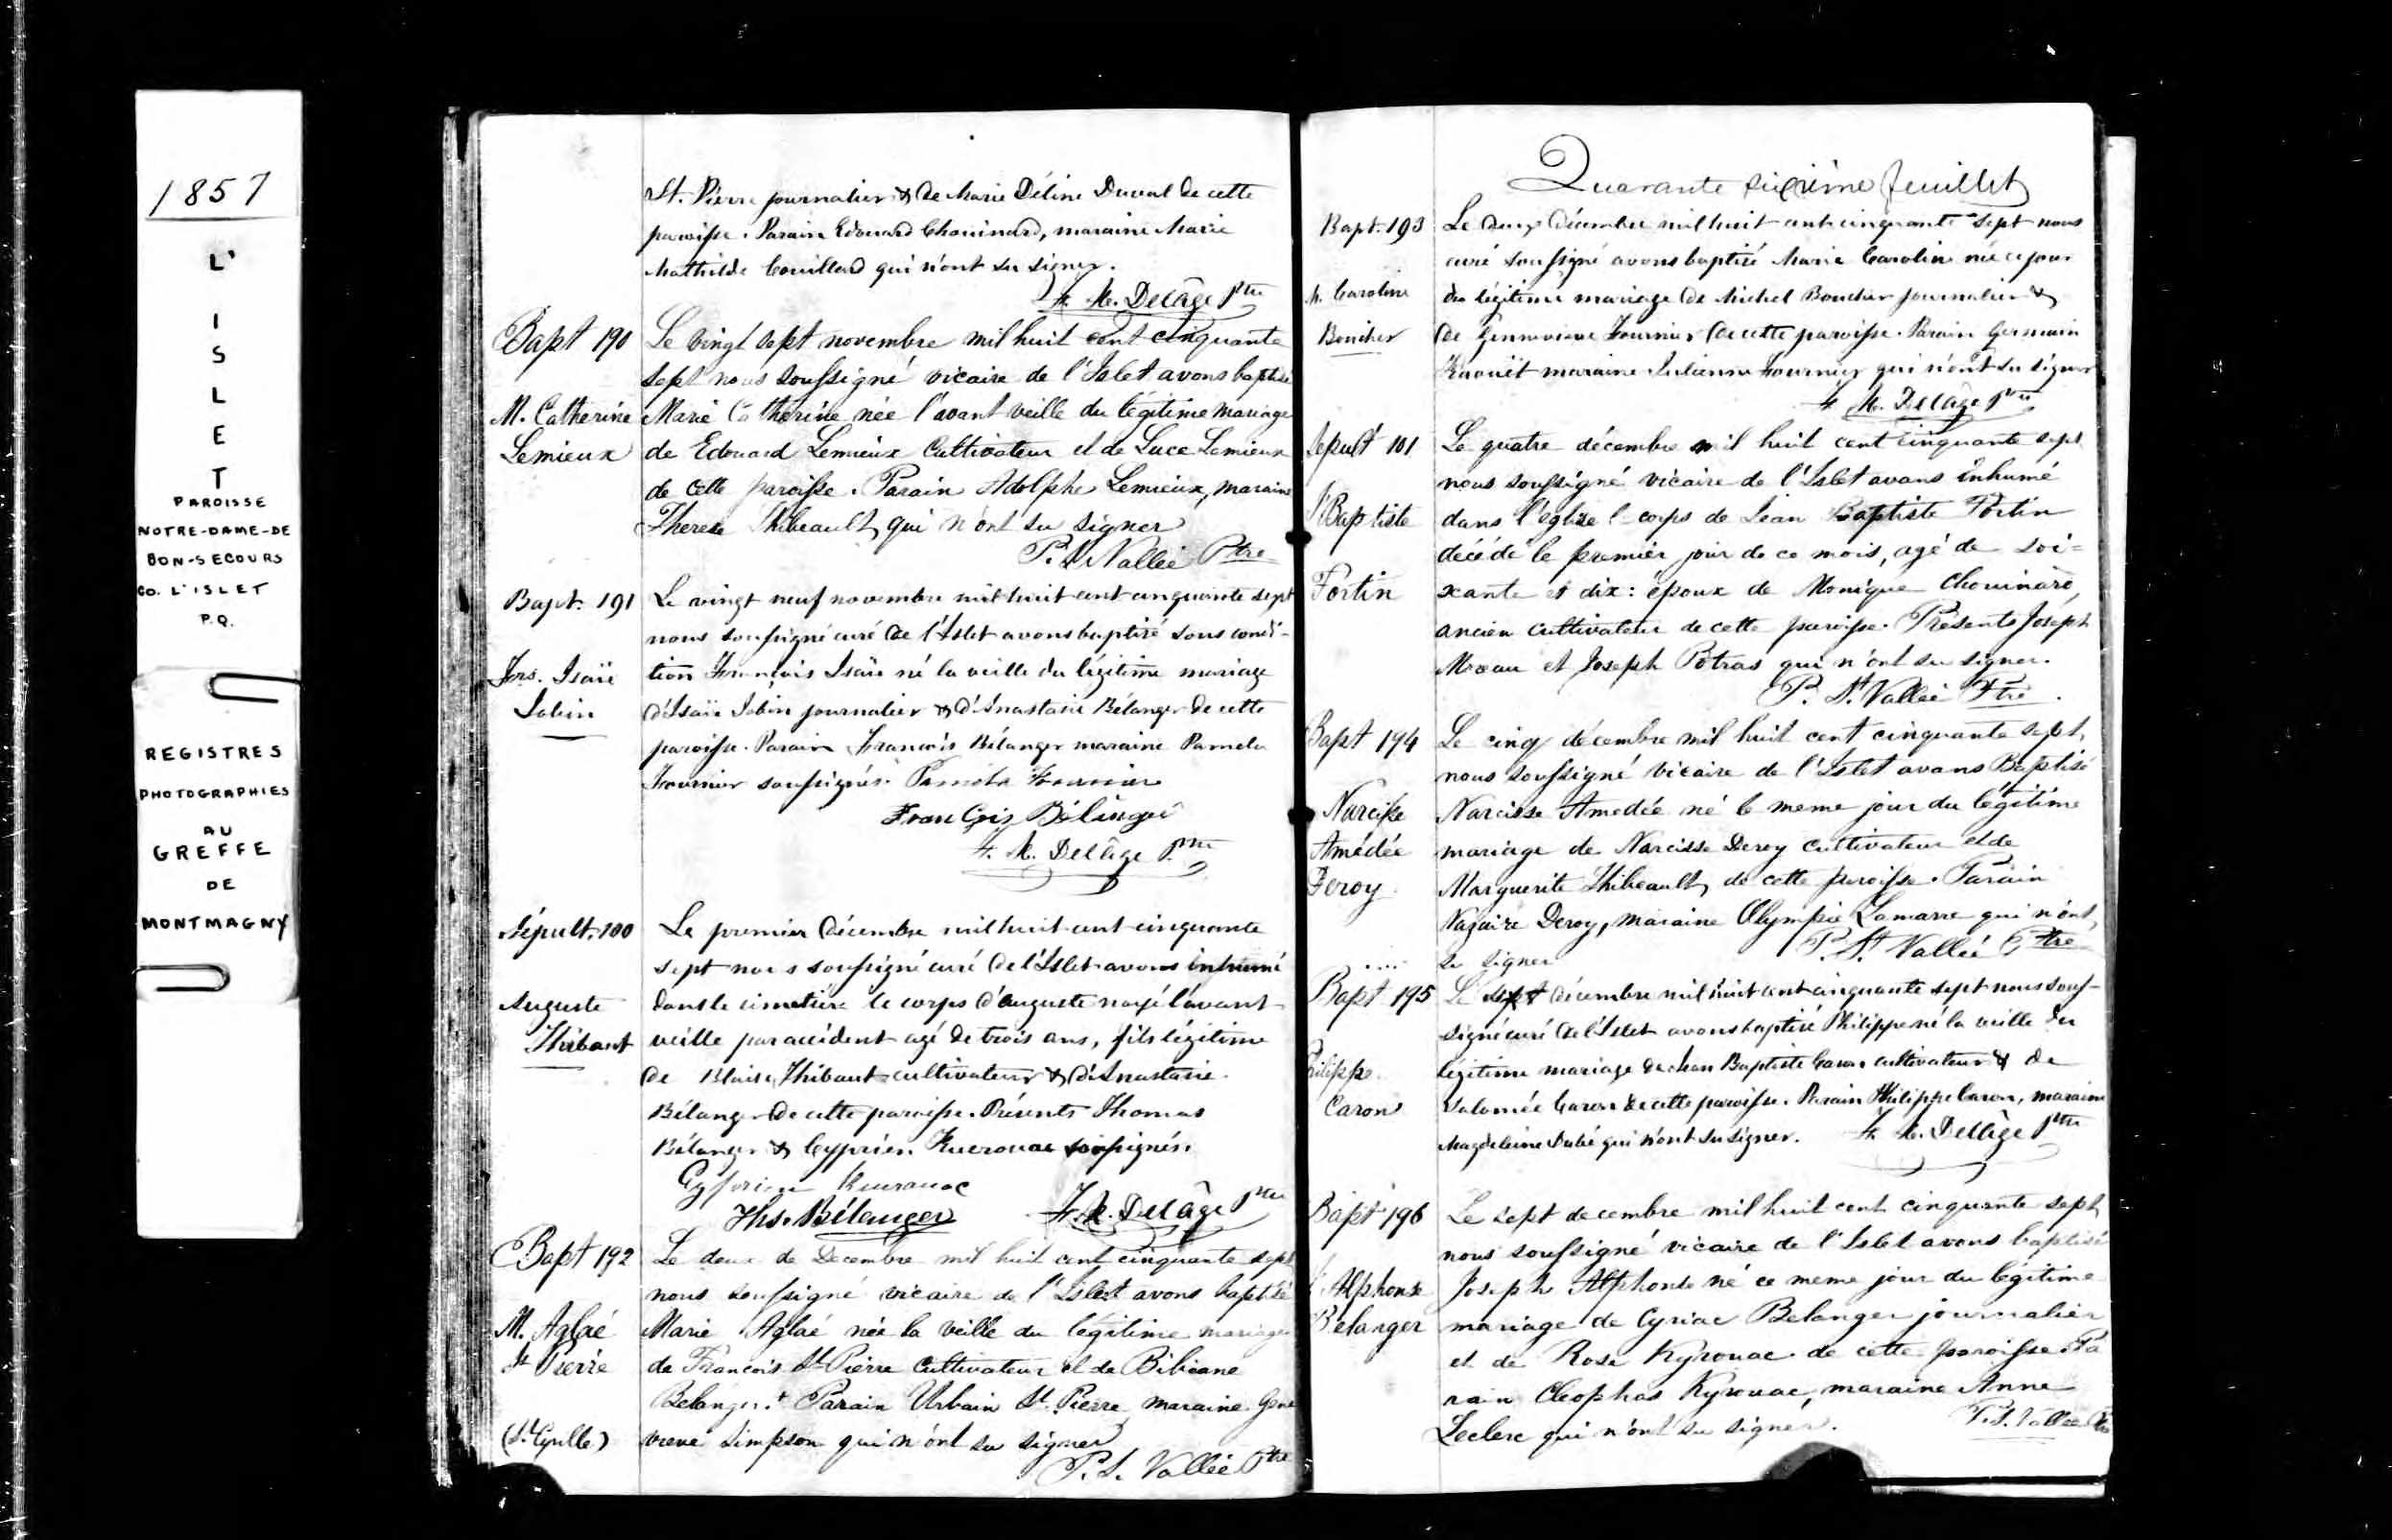 1857
L'
I
S
L
E
T
PAROISSE
NOTRE-DAME-DE
BON-SECOURS
CO. L'ISLET
P.Q.
REGISTRES
PHOTOGRAPHIES
AU
GREFFE
DE
MONTMAGNY
St. Pierre journalier & de Marie Déline Duval de cette
paroisse. Parain Edouard Chouinard, maraine Marie
Mathilde Couillard qui n'ont su signer.
F. X. Delâge Ptre
Bapt 190
M. Catherine
Lemieux
Le vingt sept novembre mil huit cent cinquante
sept nous soussigné vicaire de l'Islet avons baptisé
Marie Catherine née l'avant veille du légitime mariage
de Edouard Lemieux Cultivateur et de Luce Lemieux
de cette paroisse. Parain Adolphe Lemieux, maraine
Therese Thibeault qui n'ont su signer
P. S. Vallée Ptre
Bapt. 191
Frs. Isaïe
Jobin
Le vingt neuf novembre mil huit cent cinquante sept
nous soussigné curé de l'Islet avons baptisé sous condi-
tion François Isaïe né la veille du légitime mariage
d'Isaïe Jobin journalier & d'Anastasie Bélanger de cette
paroisse. Parain François Bélanger maraine Pamela
Fournier soussignés. Pamela Fournier
François Bélanger
F. X. Delâge Ptre
Sépult. 100
Auguste
Thibaut
Le premier décembre mil huit cent cinquante
sept nous soussigné curé de l'Islet avons inhumé
dans le cimetière le corps d'Auguste noyé l'avant
veille par accident agé de trois ans, fils légitime
de Blaise Thibaut cultivateur & d'Anastasie
Bélanger de cette paroisse. Présents Thomas
Bélanger & Cyprien Kuerouac soussignés.
Cyprien Keurouac
Ths. Bélanger F. X. Delâge Ptre
Bapt 192
M. Aglaé
St Pierre
(St Cyrille)
Le deux de Decembre mil huit cent cinquante sept
nous soussigné vicaire de l'Islet avons baptisé
Marie Aglaé née la veille du légitime mariage
de François St Pierre Cultivateur et de Bibiane
Belanger. + Parain Urbain St. Pierre maraine Gene
vieve Simpson qui n'ont su signer
P. S. Vallée Ptre
Quarante sixième feuillet
Bapt. 193
M. Caroline
Boucher
Le deux décembre mil huit cent cinquante sept nous
curé soussigné avons baptisé Marie Caroline née ce jour
du légitime mariage de Michel Boucher journalier &
de Gennevieve Fournier de cette paroisse. Parain Germain
maraine Julienne Fournier qui n'ont su signer
F. X. Delâge Ptre
Sepult 101
J Baptiste
Fortin
Le quatre décembre mil huit cent cinquante sept
nous soussigné vicaire de l'Islet avons inhumé
dans l'eglise le corps de Jean Baptiste Fortin
décédé le premier jour de ce mois, agé de soi=
xante et dix: époux de Monique Chouinard,
ancien cultivateur de cette paroisse. Présents Joseph
Moreau et Joseph Potras qui n'ont su signer.
P. St. Vallée Ptre.
Bapt 194
Narcisse
Amédée
Deroy
Le cinq décembre mil huit cent cinquante sept,
nous soussigné vicaire de l'Islet avons Baptisé
Narcisse Amedée né le meme jour du légitime
mariage de Narcisse Deroy Cultivateur et de
Marguerite Thibeault, de cette paroisse. Parain
Nazaire Deroy, maraine Olympie Lamarre qui n'ont
su signer P. St. Vallée Ptre
Bapt 195
Philippe
Caron
Le sept décembre mil huit cent cinquante sept nous sous-
signé curé de l'Islet avons baptisé Philippe né la veille du
légitime mariage de Jean Baptiste Caron cultivateur & de
Salomée Caron de cette paroisse. Parain Philippe Caron, maraine
Magdeleine Dubé qui n'ont su signer. F. X. Delâge Ptre
Bapt 196
J Alphonse
Belanger
Le sept decembre mil huit cent cinquante sept
nous soussigné vicaire de l'Islet avons baptisé
Joseph Alphonse né ce meme jour du légitime
mariage de Cyriac Belanger journalier
et de Rose Kyrouac de cette paroisse. Pa
rain Cleophas Kyrouac, maraine Anne
Leclerc qui n'ont su signer. P. S. Vallée Ptre